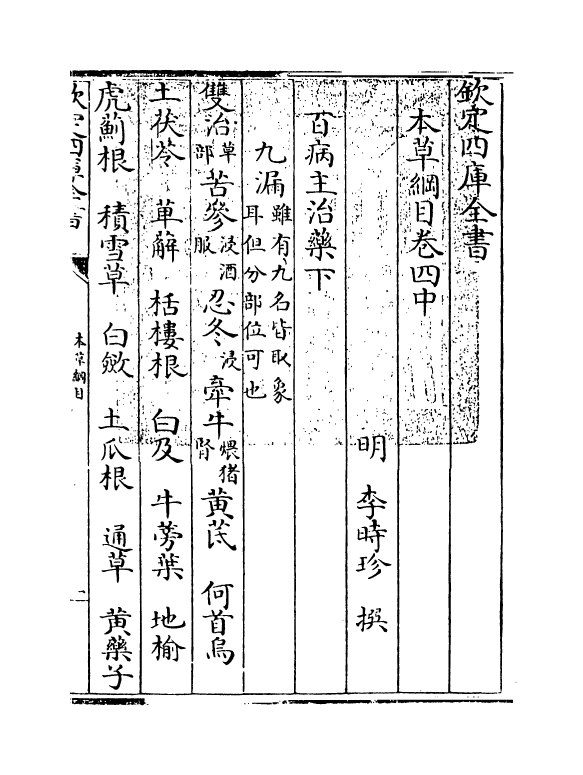 欽定四庫全書
本草綱目卷四中
明 李時珍 撰
百病主治藥下
九漏雖有九名皆取象耳但分部位可也
雙治草部 苦參浸酒服 忍冬浸 牽牛煨猪腎 黄茋 何首烏
土茯苓 萆薢 栝樓根 白及 牛蒡葉 地榆
虎薊根 積雪草 白斂 土瓜根 通草 黄藥子
欽定四庫全書
本草綱目